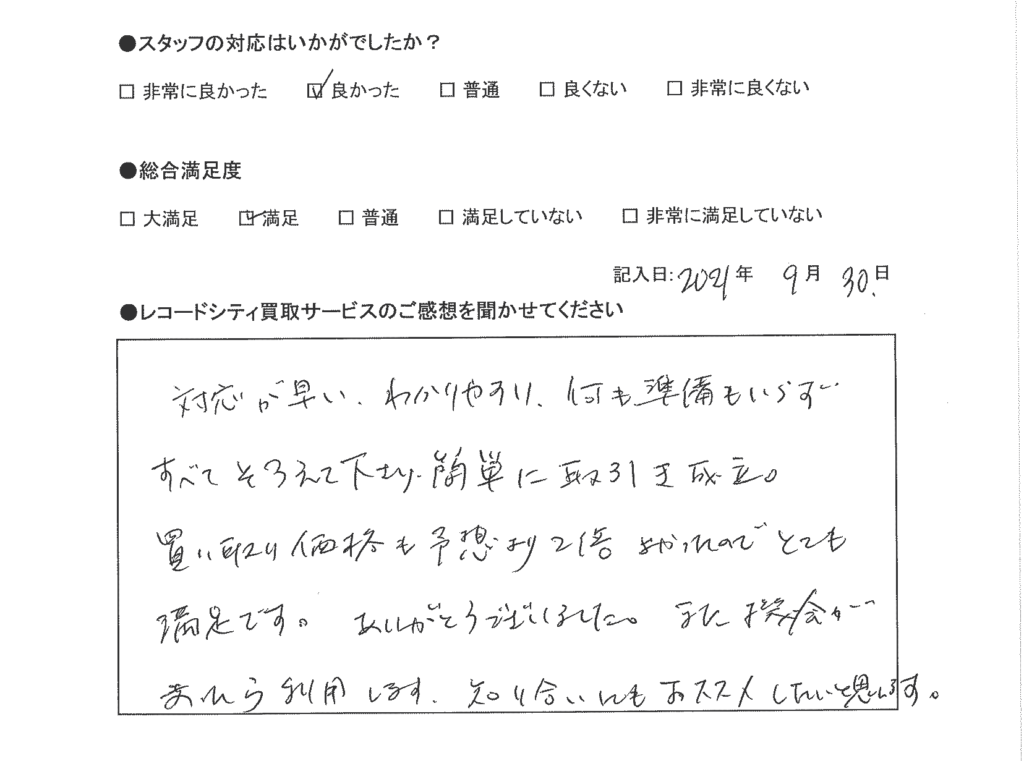 ●スタッフの対応はいかがでしたか？
□ 非常に良かった ☑ 良かった □ 普通 □ 良くない □ 非常に良くない
●総合満足度
□ 大満足 ☑ 満足 □ 普通 □ 満足していない □ 非常に満足していない
記入日:2021年 9月 30日
●レコードシティ買取サービスのご感想を聞かせてください
対応が早い、わかりやすい、何も準備もいらず
すべてそろえて下さり、簡単に取引き成立。
買い取り価格も予想より2倍よかったのでとても
満足です。ありがとうございました。また機会が
あったら利用します、知り合いにもおススメしたいと思います。